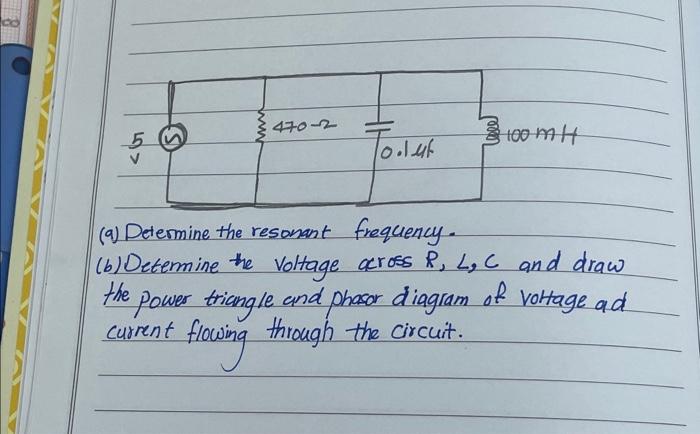 470-Ω
5
V
0.1 µf
100 mH
(a) Determine the resonant frequency.
(b) Determine the Voltage across R, L, C and draw
the power triangle and phasor diagram of voltage ad
current flowing through the circuit.